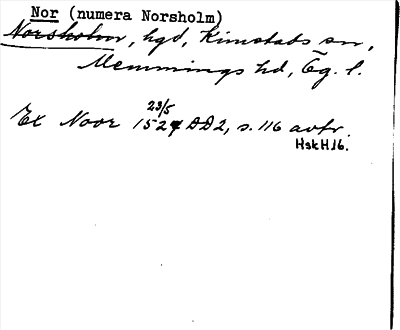 Nor (numera Norsholm)
Norsholm, hgd, Kimstads sn,
Memmings hd, Ög. l.
23/5
Ex Noor 1524 DD2, s. 116 avtr.
Hsk H16.